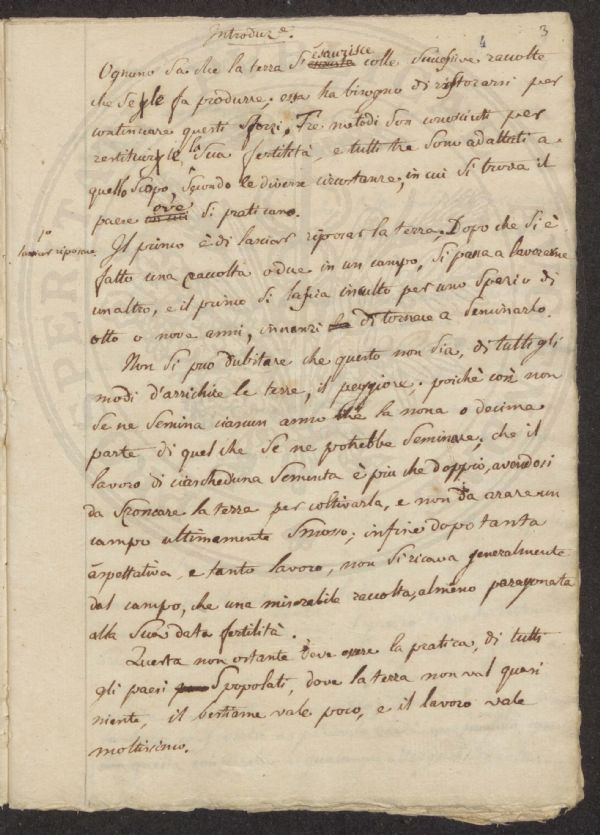 4 3
Introduz.e
esaurisce
Ognuno sa che la terra si colle successive raccolte
che se le fa produrre; essa ha bisogno di ristorarsi per
continuare questi sforzi. Tre metodi son conosciuti per
la
restituirle sua fertilità, e tutti tre sono adattati a
quello scopo, secondo le diverse circostanze, in cui si trova il
ove
paese in cui si praticano.
1º
lasciar riposare
Il primo è di lasciar riposar la terra. Dopo che si è
fatto una raccolta o due in un campo, si passa a lavorarne
un altro, e il primo si lascia inculto per uno spazio di
otto o nove anni, innanzi di tornare a seminarlo.
Non si può dubitare che questo non sia, di tutti gli
modi d'arrichire le terre, il peggiore; poichè così non
se ne semina ciascun anno che la nona o decima
parte di quel che se ne potrebbe seminare; che il
lavoro di ciascheduna sementa è più che doppio, avendosi
da sroncare la terra per coltivarla, e non da arare un
campo ultimamente smosso; infine dopo tanta
aspettativa, e tanto lavoro, non si ricava generalmente
dal campo, che una miserabile raccolta, almeno paragonata
alla sua data fertilità.
Questa non ostante deve essere la pratica, di tutti
gli paesi spopolati, dove la terra non val quasi
niente, il bestiame vale poco, e il lavoro vale
moltissimo.